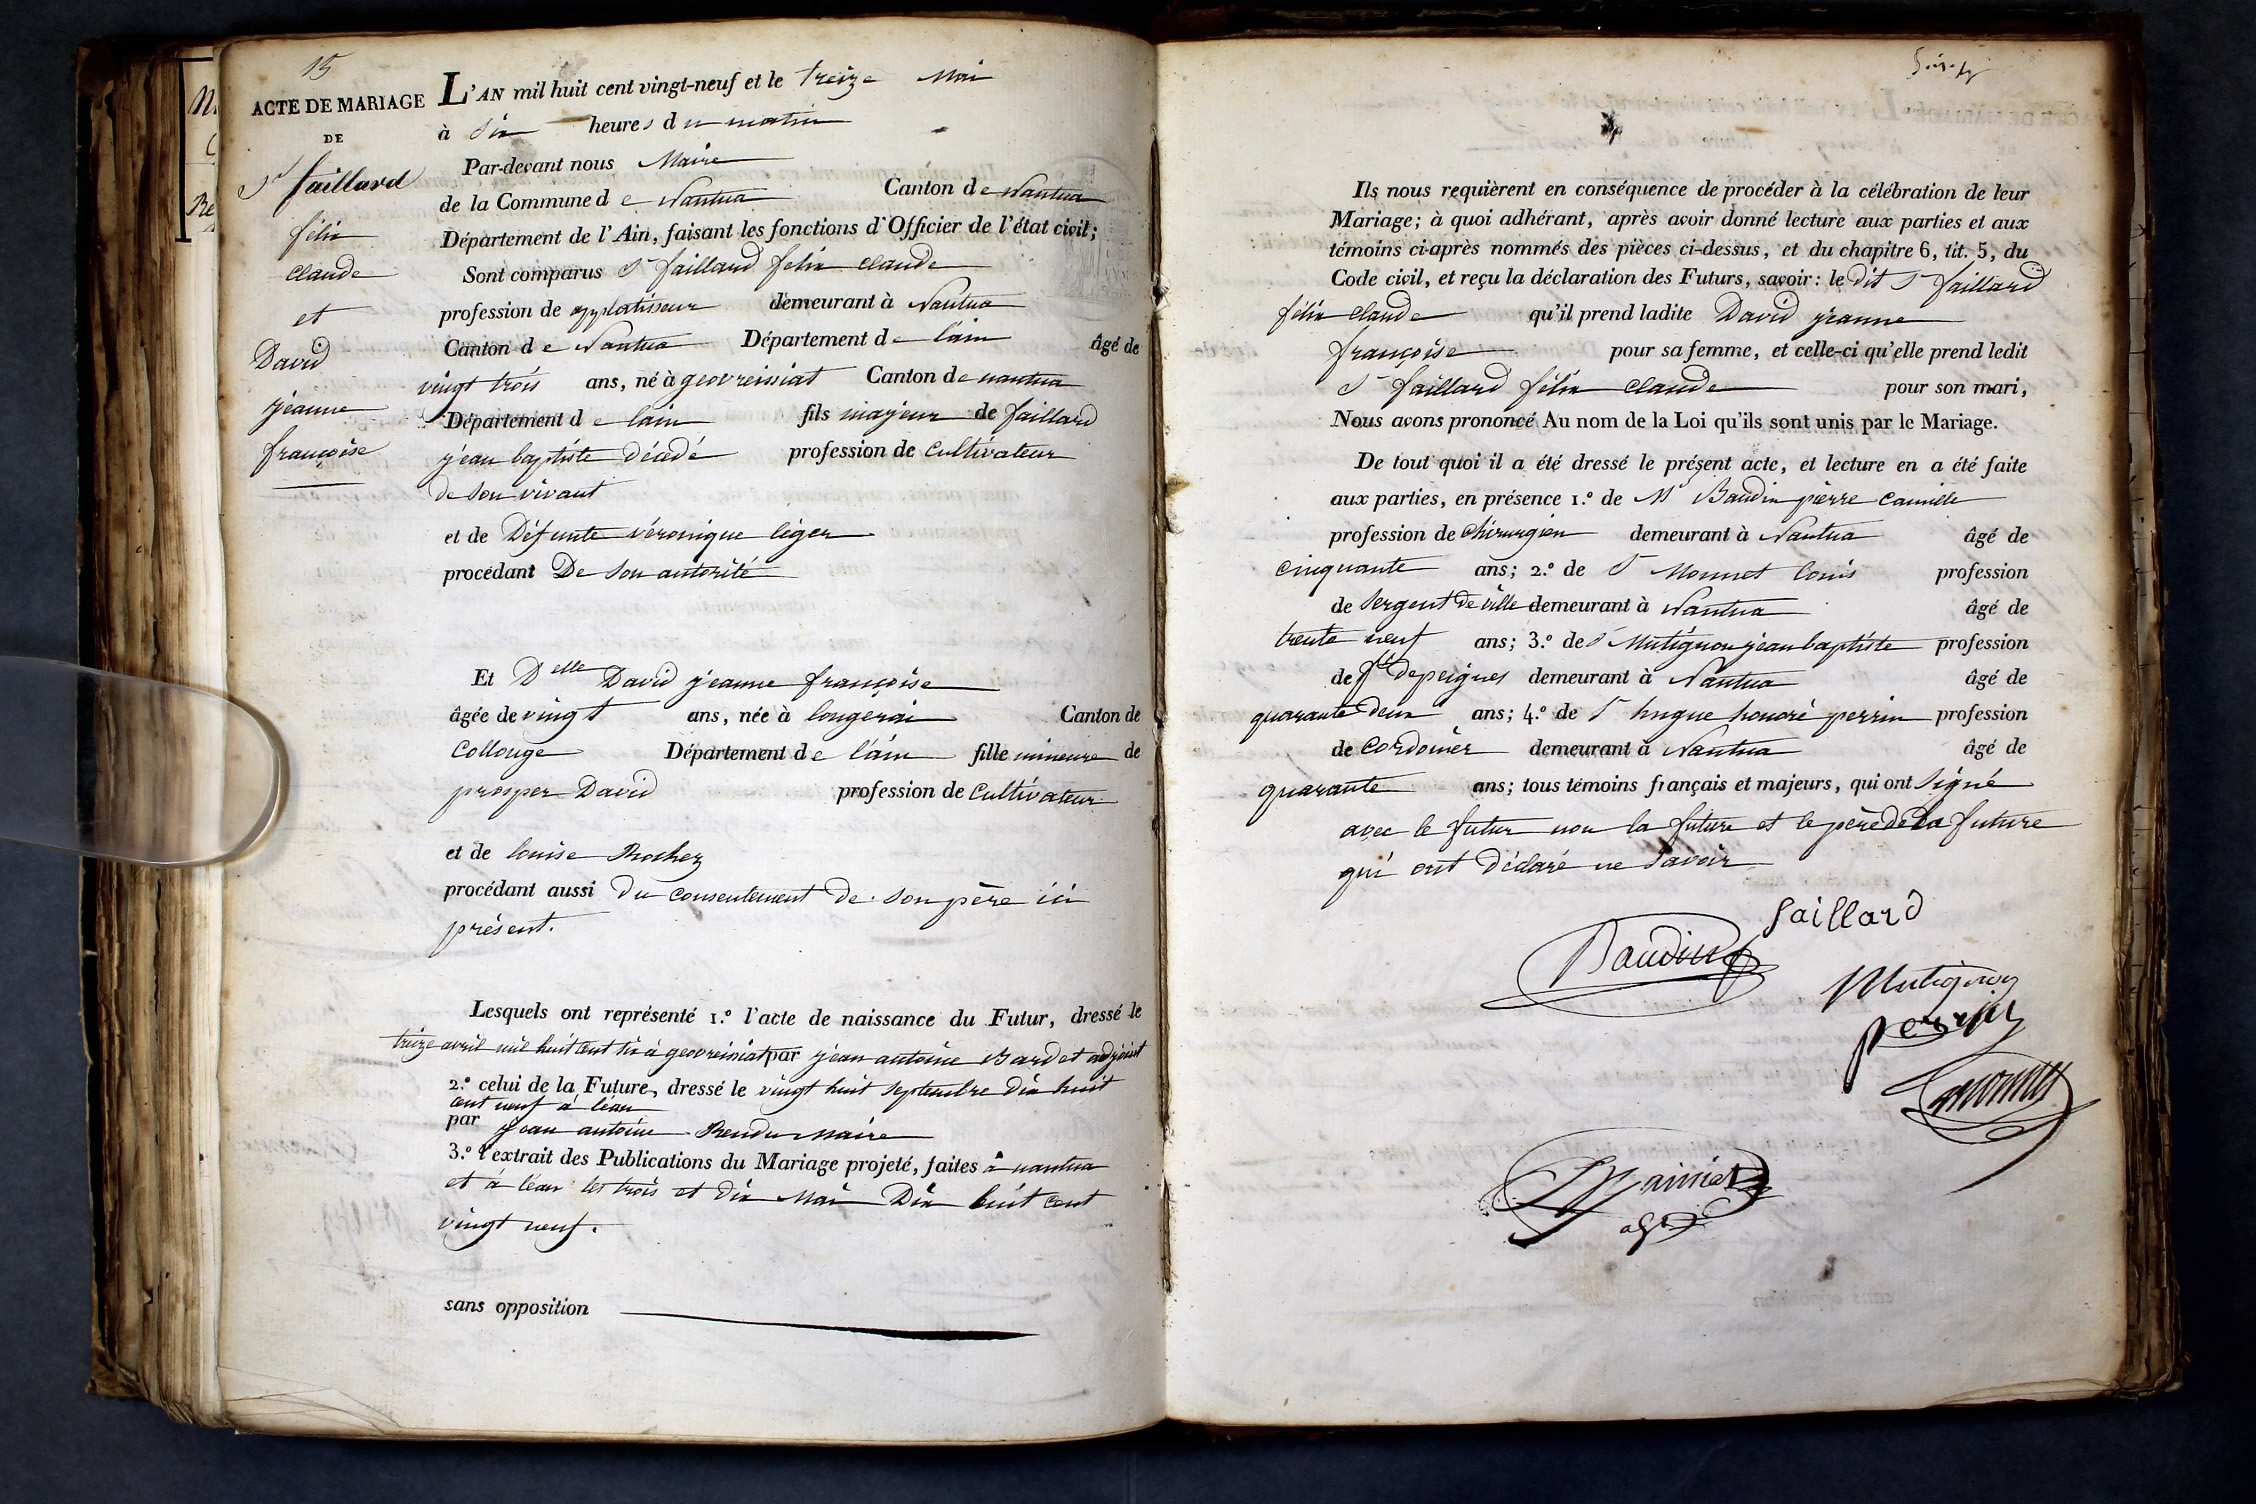 15
ACTE DE MARIAGE
DE
Sr Faillard
félix
claude
et
David
jeanne
françoise
L'AN mil huit cent vingt-neuf et le treize Mai
à Six heures du matin
Par-devant nous Maire
de la Commune de Nantua Canton de Nantua
Département de l'Ain, faisant les fonctions d'Officier de l'état civil;
Sont comparus Sr faillard félix claude
profession de applatisseur demeurant à Nantua
Canton de Nantua Département de l'ain âgé de
vingt trois ans, né à geovreissiat Canton de nantua
Département de l'ain fils majeur de faillard
jean baptiste décédé profession de cultivateur
de son vivant
et de Défunte véronique léger
procédant De son autorité
Et Delle David jeanne françoise
âgée de vingt ans, née à longerai Canton de
Collonge Département de l'ain fille mineure de
prosper David profession de Cultivateur
et de louise Rochez
procédant aussi du consentement de son père ici
présent.
Lesquels ont représenté 1.º l'acte de naissance du Futur, dressé le
treize avril mil huit cent six à geovreissiat par jean antoine Bardet adjoint
2.º celui de la Future, dressé le vingt huit septembre dix huit
cent neuf à léaz
par jean antoine Rendu maire
3.º l'extrait des Publications du Mariage projeté, faites à nantua
et à léaz les trois et dix Mai Dix huit cent
vingt neuf.
sans opposition
Ils nous requièrent en conséquence de procéder à la célébration de leur
Mariage; à quoi adhérant, après avoir donné lecture aux parties et aux
témoins ci-après nommés des pièces ci-dessus, et du chapitre 6, tit. 5, du
Code civil, et reçu la déclaration des Futurs, savoir: le dit Sr faillard
félix claude qu'il prend ladite David jeanne
françoise pour sa femme, et celle-ci qu'elle prend ledit
Sr faillard félix claude pour son mari,
Nous avons prononcé Au nom de la Loi qu'ils sont unis par le Mariage.
De tout quoi il a été dressé le présent acte, et lecture en a été faite
aux parties, en présence 1.º de Mr Baudin pierre camille
profession de chirurgien demeurant à Nantua âgé de
cinquante ans; 2.º de Sr Monnet louis profession
de sergent de ville demeurant à Nantua âgé de
trente neuf ans; 3.º de Sr Mutignon jean baptiste profession
de ft de peignes demeurant à Nantua âgé de
quarante deux ans; 4.º de Sr hugue honoré perrin profession
de cordonier demeurant à Nantua âgé de
quarante ans; tous témoins français et majeurs, qui ont signé
avec le futur non la future et le père de la future
qui ont déclaré ne savoir
faillard
Baudin
Mutignon
perrin
monnet